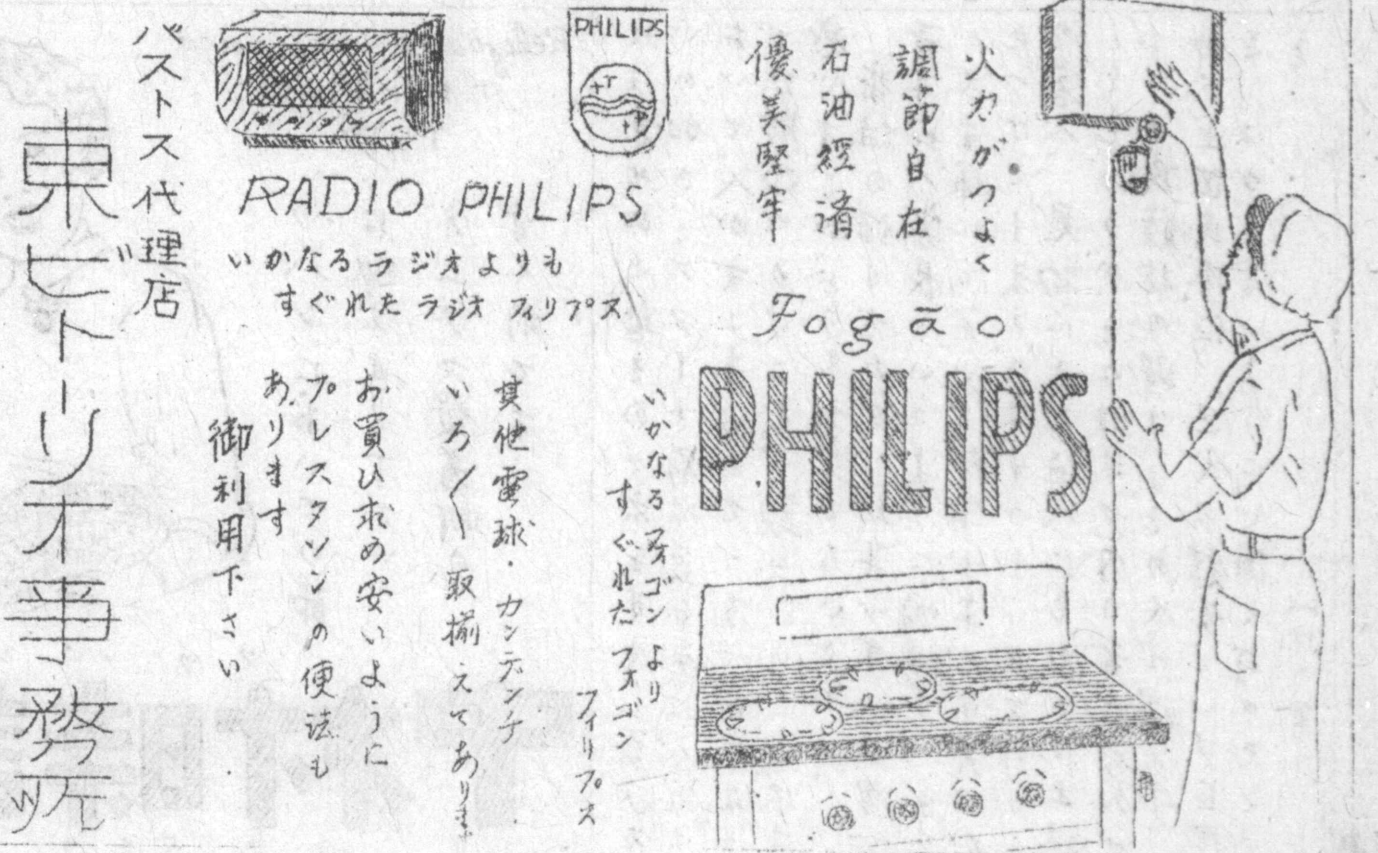 火力がつよく
調節自在
石油経済
優美堅牢
Fogão
PHILIPS
いかなるフオゴンより
すぐれたフオゴン
フィリプス
PHILIPS
RADIO PHILIPS
いかなるラジオよりも
すぐれたラジオ フィリプス
其他電球・カンテンテ
いろ〱取揃えてあります
お買ひ求め安いように
プレスタソンの便法も
あります
御利用下さい
バストス代理店
東ビトーリオ事務所